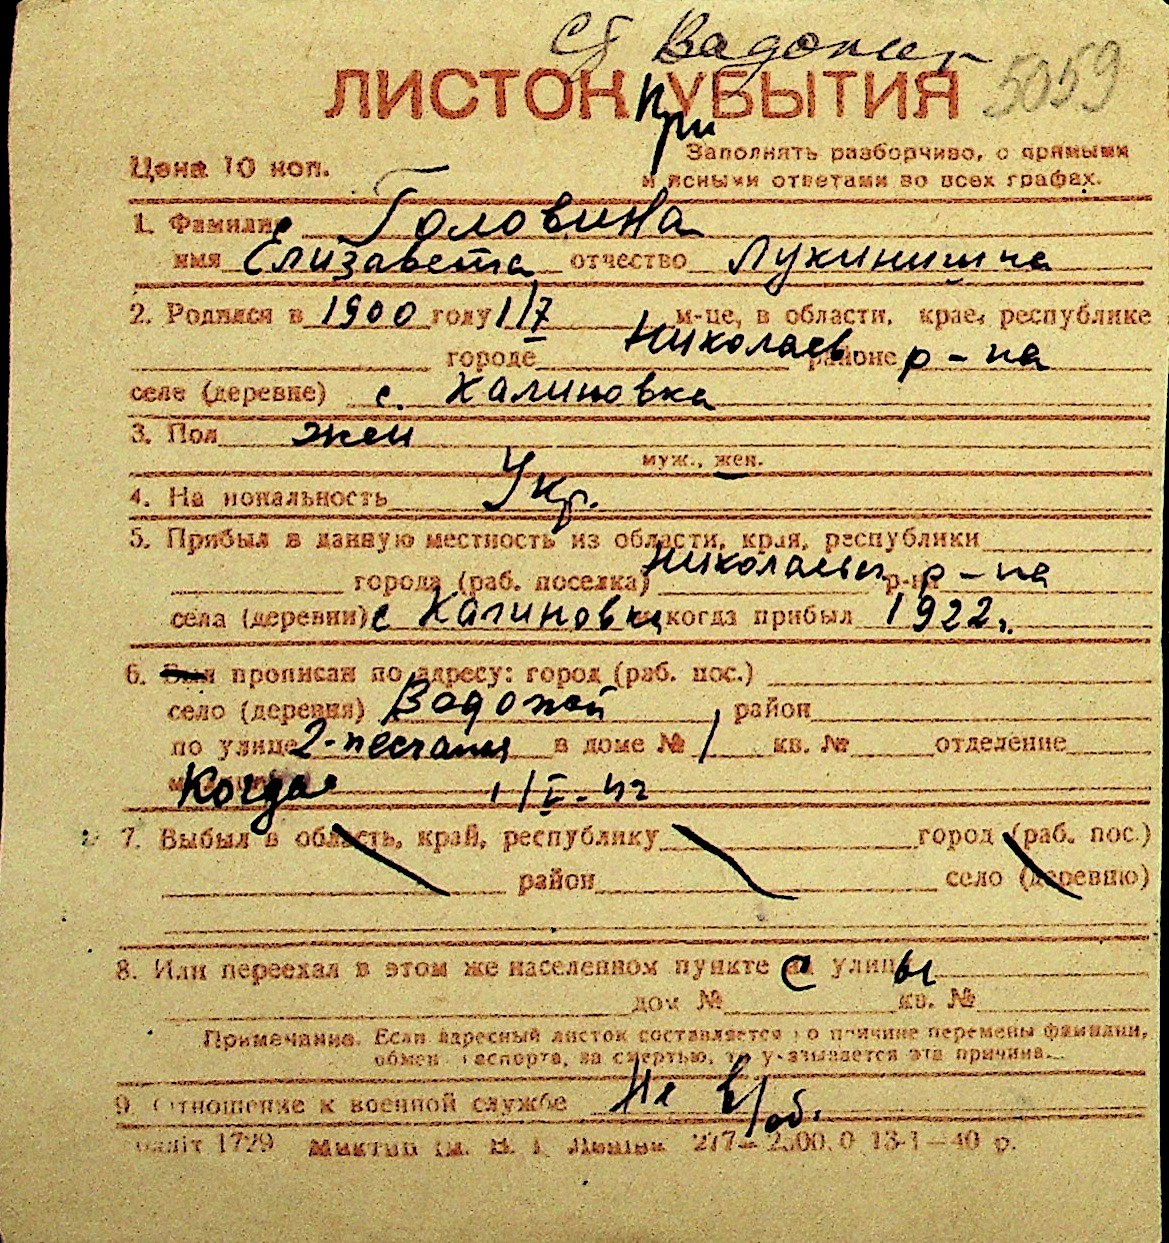 Ст Водопой
5059
ЛИСТОК УБЫТИЯ
При
Цена 10 коп.
Заполнять разборчиво, с прямыми
и ясными ответами во всех графах.
1. Фамилия Головина
имя Елизавета отчество Лукинишна
2. Родился в 1900 году 1/V м-це, в области, крае, республике
городе Николаев районе р-на
селе (деревне) с. Калиновка
3. Пол жен
муж., жен.
4. Национальность Укр.
5. Прибыл в данную местность из области, края, республики
города (раб. поселка) Николаевск р-на р-на
села (деревни) с Калиновка когда прибыл 1922 г.
6. Был прописан по адресу: город (раб. пос.)
село (деревня) Вадопой район
по улице 2-песчаная в доме № 1 кв. № отделение
Когда 1/I-42
7. Выбыл в область, край, республику город (раб. пос.)
район село (деревню)
8. Или переехал в этом же населенном пункте с улицы
дом № кв. №
Примечание. Если адресный листок составляется по причине перемены фамилии,
обмен паспорта, за смертью, то указывается эта причина.
9. Отношение к военной службе Не в/об.
1729 277—2500.0 13-1—40 р.